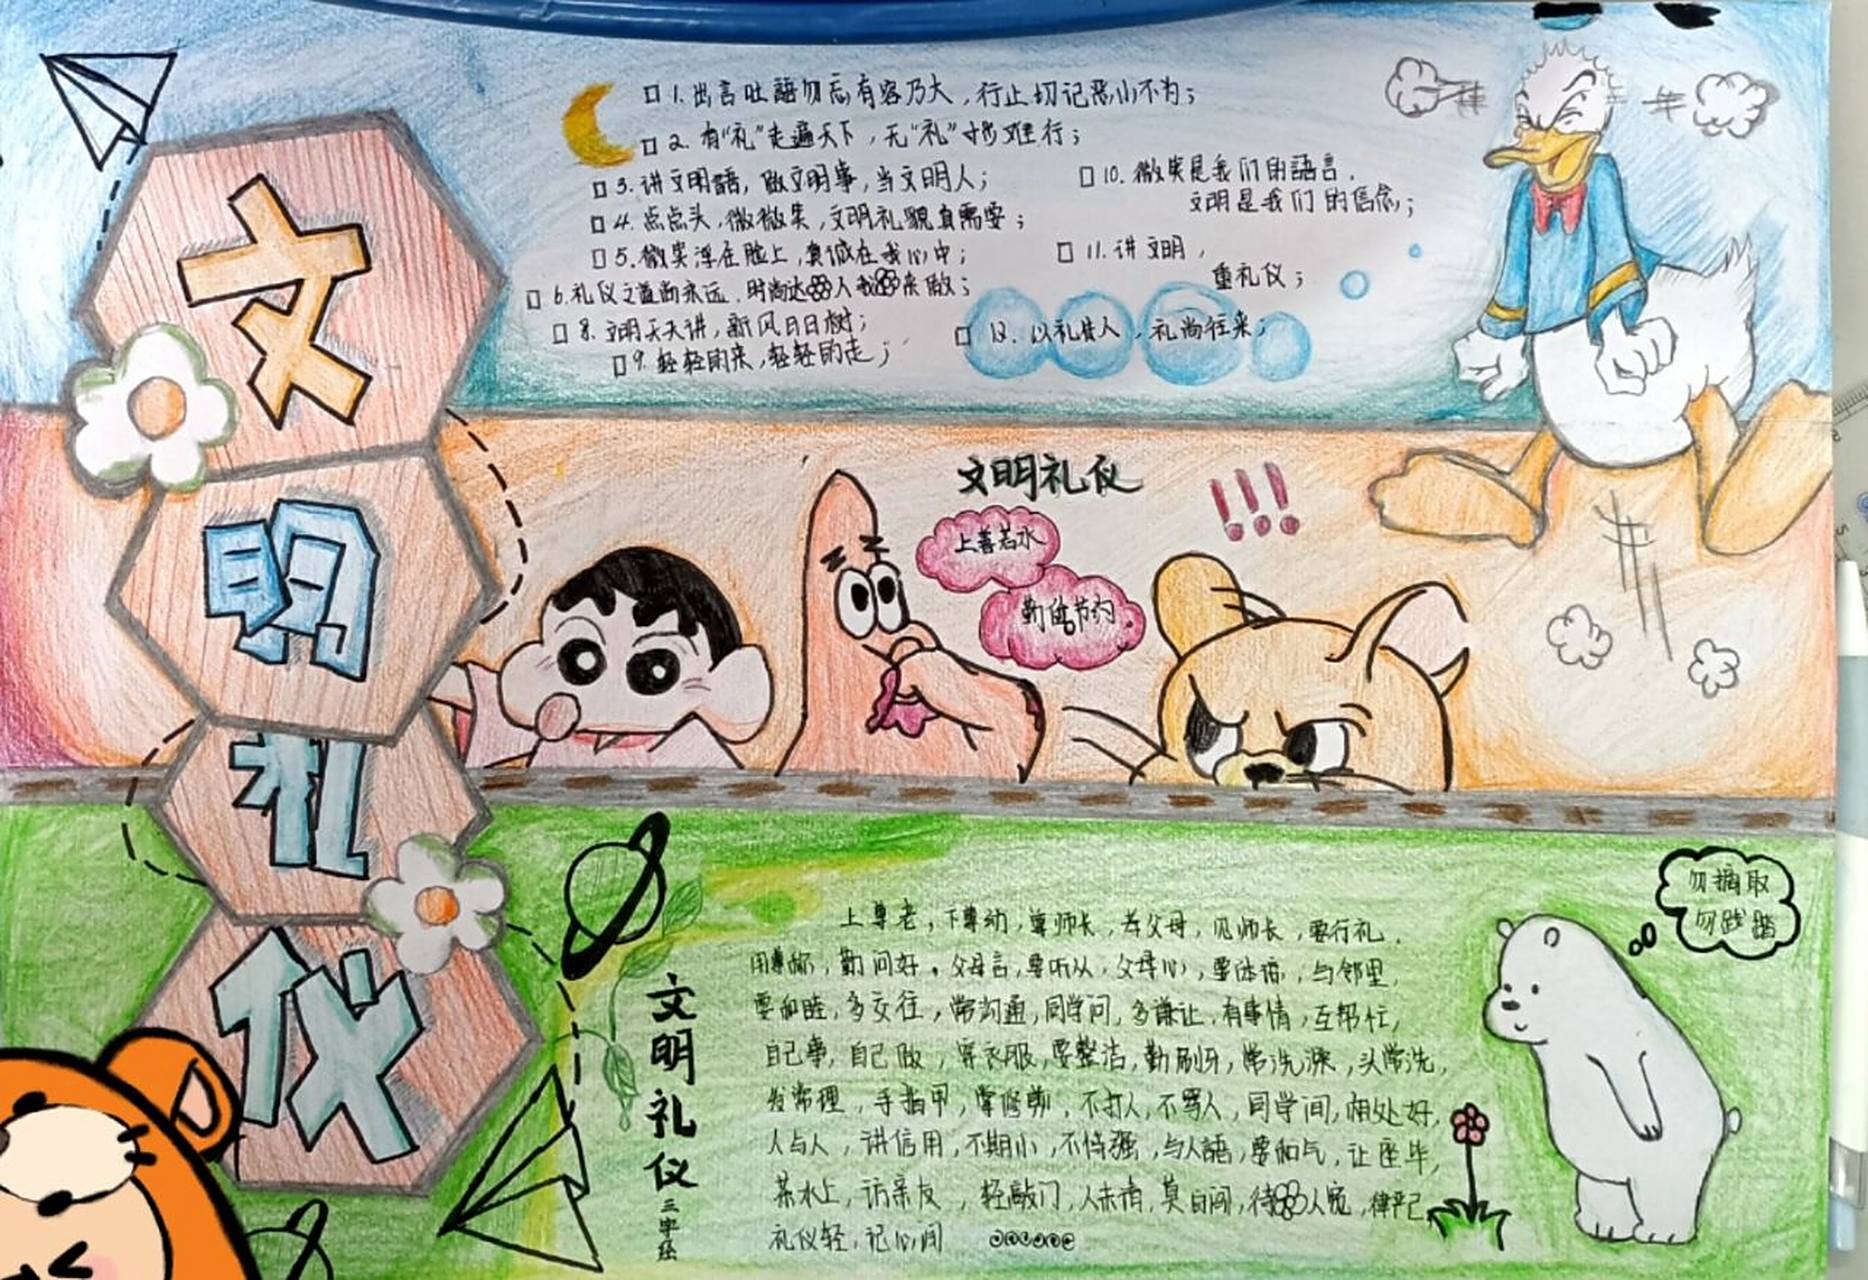 文
明
礼
仪
1.出言吐語勿忘有容乃大,行止切记恶小不为;
2.有“礼”走遍天下,无“礼”寸步难行;
3.讲文明語,做文明事,当文明人;
4.点点头,微微笑,文明礼貌真需要;
5.微笑浮在脸上,真诚在我心中;
6.礼仪之道尚永远,时尚达人我来做;
8.文明天天讲,新风日日树;
9.轻轻的来,轻轻的走;
10.微笑是我们的語言,
文明是我们的信念;
11.讲文明,
重礼仪;
12.以礼待人,礼尚往来;
文明礼仪
!!!
上善若水
勤俭节约
文明礼仪三字经
上尊老,下尊幼,尊师长,孝父母,见师长,要行礼,
用尊称,勤问好。父母言,要听从,父母心,要体谅,与邻里,
要和睦,多交往,常沟通,同学问,多谦让,有事情,互帮忙,
自己事,自己做,穿衣服,要整洁,勤刷牙,常洗澡,头常洗,
发常理,手指甲,常修剪,不打人,不骂人,同学间,相处好,
人与人,讲信用,不期小,不恃强,与人語,要和气,让座毕,
茶水上,访亲友,轻敲门,人未请,莫自闯,待人宽,律严己,
礼仪轻,记心间
勿摘取
勿践踏